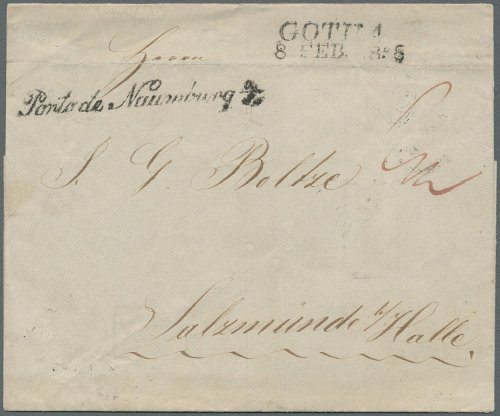 GOTHA
8 FEB.
Herrn
Porto de Naumburg
J. G. Boltze
Salzmünde b/Halle.